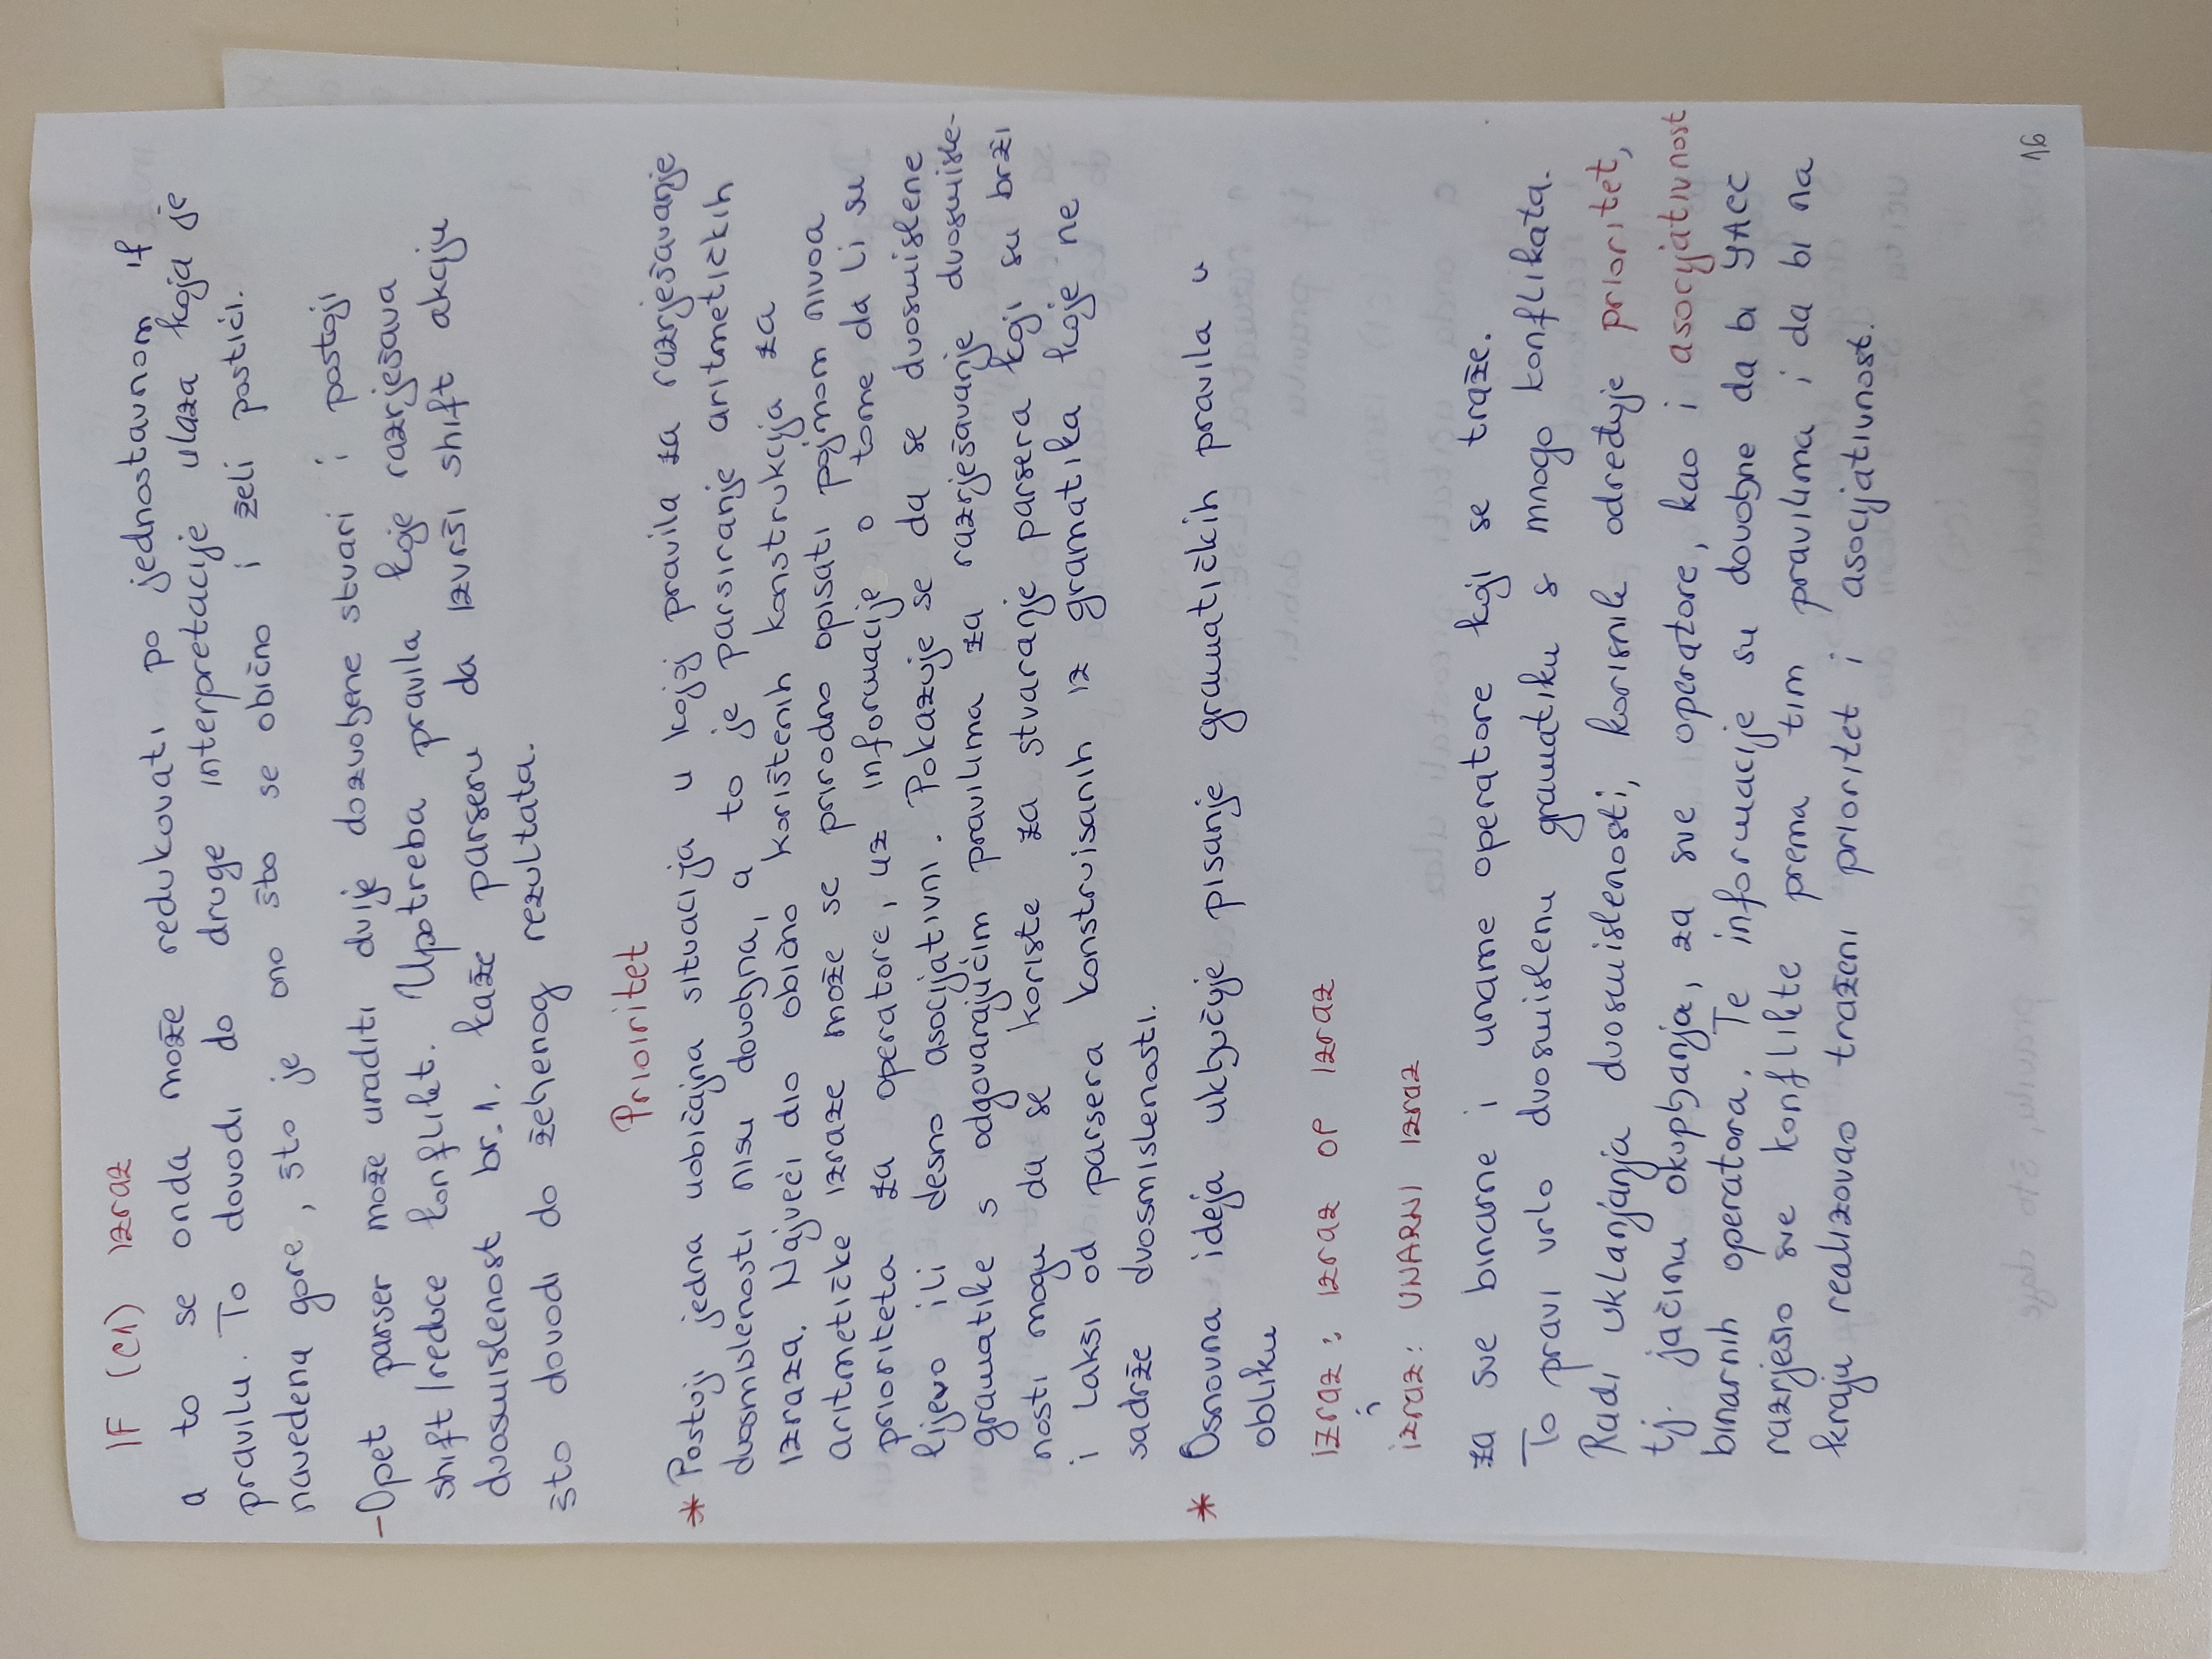 IF (C1) izraz
a to se onda može redukovati po jednostavnom if
pravilu. To dovodi do druge interpretacije ulaza koja je
navedena gore, što je ono što se obično i želi postići.
-Opet parser može uraditi dvije dozvoljene stvari i postoji
shift/reduce konflikt. Upotreba pravila koje razrješava
dvosmislenost br. 1. kaže parseru da izvrši shift akciju
što dovodi do željenog rezultata.
Prioiritet
* Postoji jedna uobičajna situacija u kojoj pravila za razrješavanje
dvosmislenosti nisu dovoljna, a to je parsiranje aritmetičkih
izraza. Najveći dio obično korištenih konstrukcija za
aritmetičke izraze može se prirodno opisati pojmom nivoa
prioriteta za operatore, uz informacije o tome da li su
lijevo ili desno asocijativni. Pokazuje se da se dvosmislene
gramatike s odgovarajućim pravilima za razrješavanje dvosmisle-
nosti mogu da se koriste za stvaranje parsera koji su brži
i lakši od parsera konstruisanih iz gramatika koje ne
sadrže dvosmislenosti.
* Osnovna ideja uključuje pisanje gramatičkih pravila u
obliku
izraz : izraz OP izraz
i
izraz: UNARNI izraz
za sve binarne i unarne operatore koji se traže.
To pravi vrlo dvosmislenu gramatiku s mnogo konflikata.
Radi uklanjanja dvosmislenosti, korisnik određuje prioritet,
tj. jačinu okupljanja, za sve operatore, kao i asocijativnost
binarnih operatora. Te informacije su dovoljne da bi YACC
razrješio sve konflikte prema tim pravilima i da bi na
kraju realizovao traženi prioritet i asocijativnost.
16